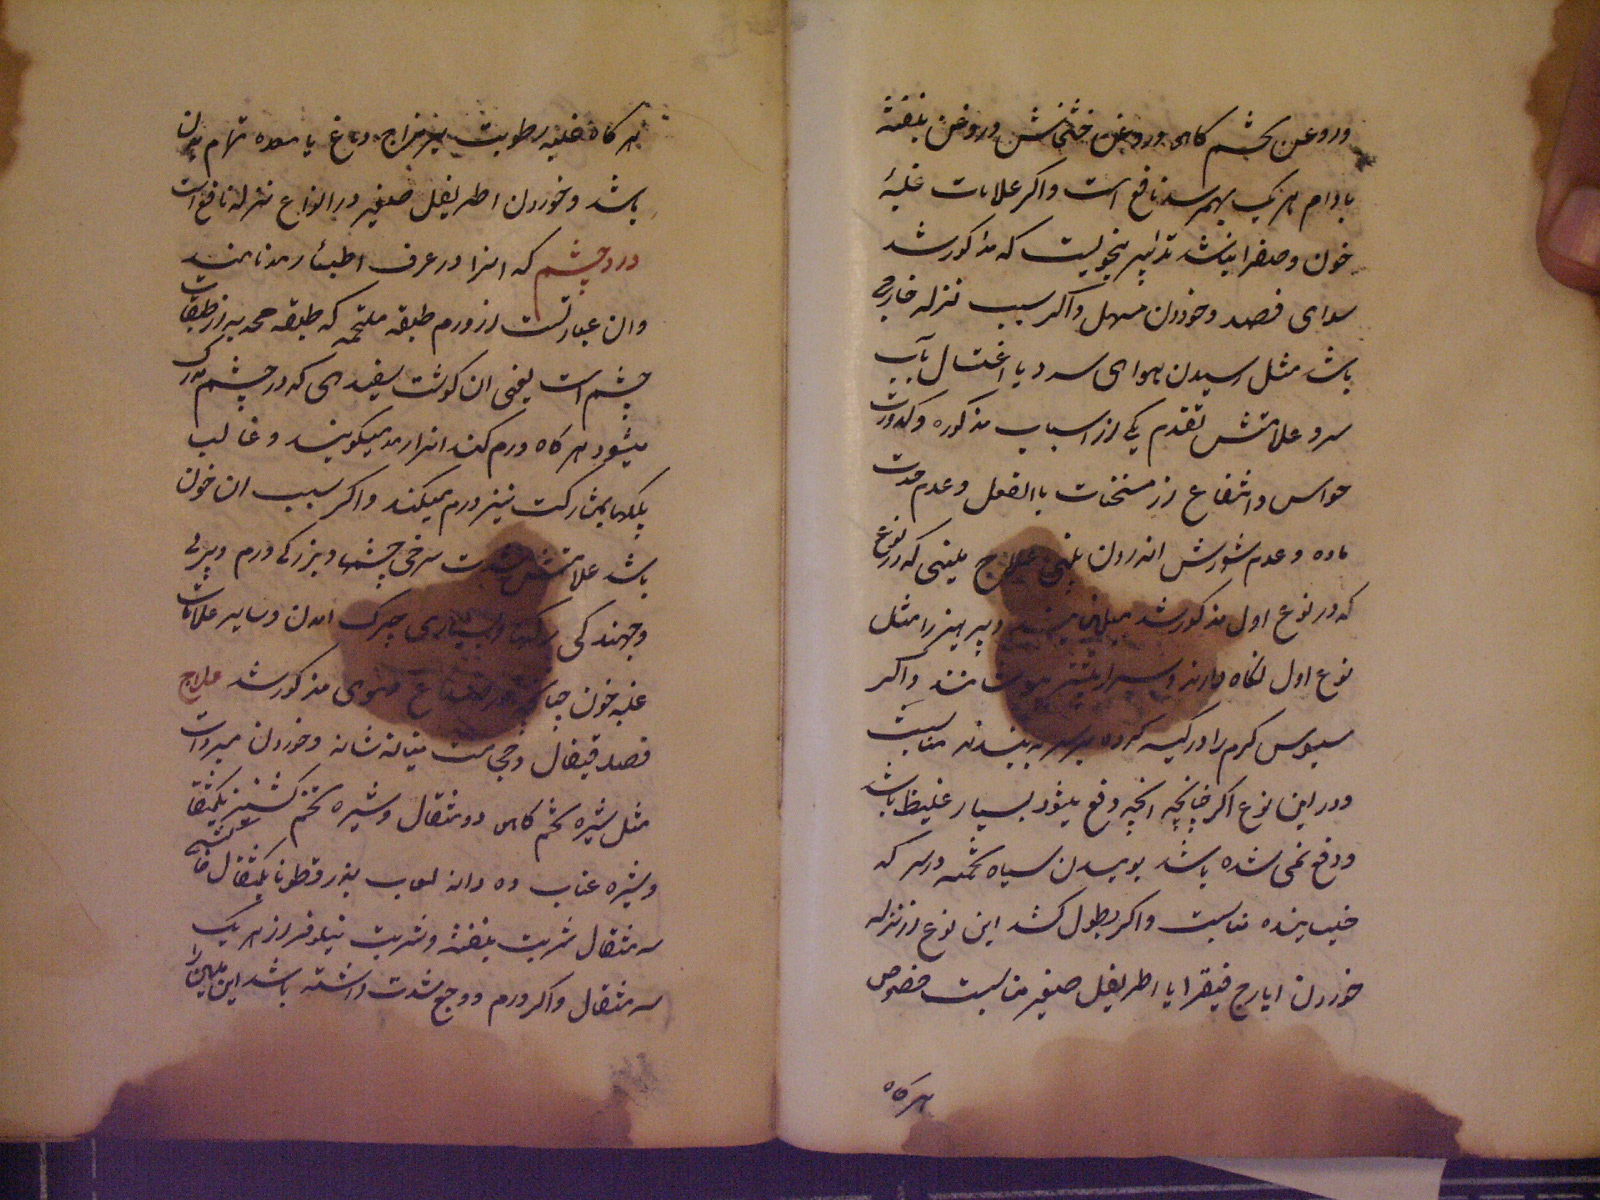 وروغن تخم کاهو وروغن خشخاش وروغن بنفشه
بادام هر یک بهم رسد نافع است واکر علامات غلبهٔ
خون وصفرا نباشد تدابیر بنحویست که مذکور شد
سوای فصد وخوردن مسهل واکر سبب نزله خارجی
باشد مثل رسیدن هوای سرد یا اغتسال بآب
سرد علامتش تقدم یکی از اسباب مذکوره وکدورت
حواس وانتفاع از مسخنات بالفعل وعدم حدت
ماده وعدم شورش اندرون بینی علاج
که در نوع اول مذکور شد وپرهیز را مثل
نوع اول نکاه دارند واکر
سبوس کرم را در کیسه کرده بر سر به بندند مناسبست
ودر این نوع اکر چنانچه انچه دفع میشود بسیار غلیظ باشد
ودفع نمی شده باشد بوییدن سیاه تخمه در سرکه
خیسانیده مناسبت واکر بطول کشد این نوع از نزله
خوردن ایارج فیقرا یا اطریفل صغیر مناسبت خصوص
هرکاه
هرکاه غلبه رطوبت بر مزاج دماغ یا معده تمام بدن
باشد وخوردن اطریفل صغیر در انواع نزله نافع است
درد چشم که انرا در عرف اطبا رمد نامند
وان عبارتست از ورم طبقه ملتحمه که طبقه از طبقات
چشم است یعنی ان کوشت سفیدی که در چشم مدرک
میشود هرکاه ورم کند انرا رمد میکویند وغالب
پلکها بمشارکت نیز ورم میکند واکر سبب ان خون
باشد علامتش شدت سرخی چشمها وبزرکی ورم وپری
وجهندکی رکها وبسیاری چرک امدن وسایر علامات
غلبه خون چنانکه در صداع دموی مذکور شد علاج
فصد قیفال وحجامت میانه شانه وخوردن مبردات
مثل شیره تخم کاهو دو مثقال وشیره تخم کشنیز یکمثقال
وشیره عناب ده دانه لعاب بذر قطونا یکمثقال
سه مثقال شربت بنفشه وشربت نیلوفر از هر یک
سه مثقال واکر ورم ووجع شدت داشته باشد این